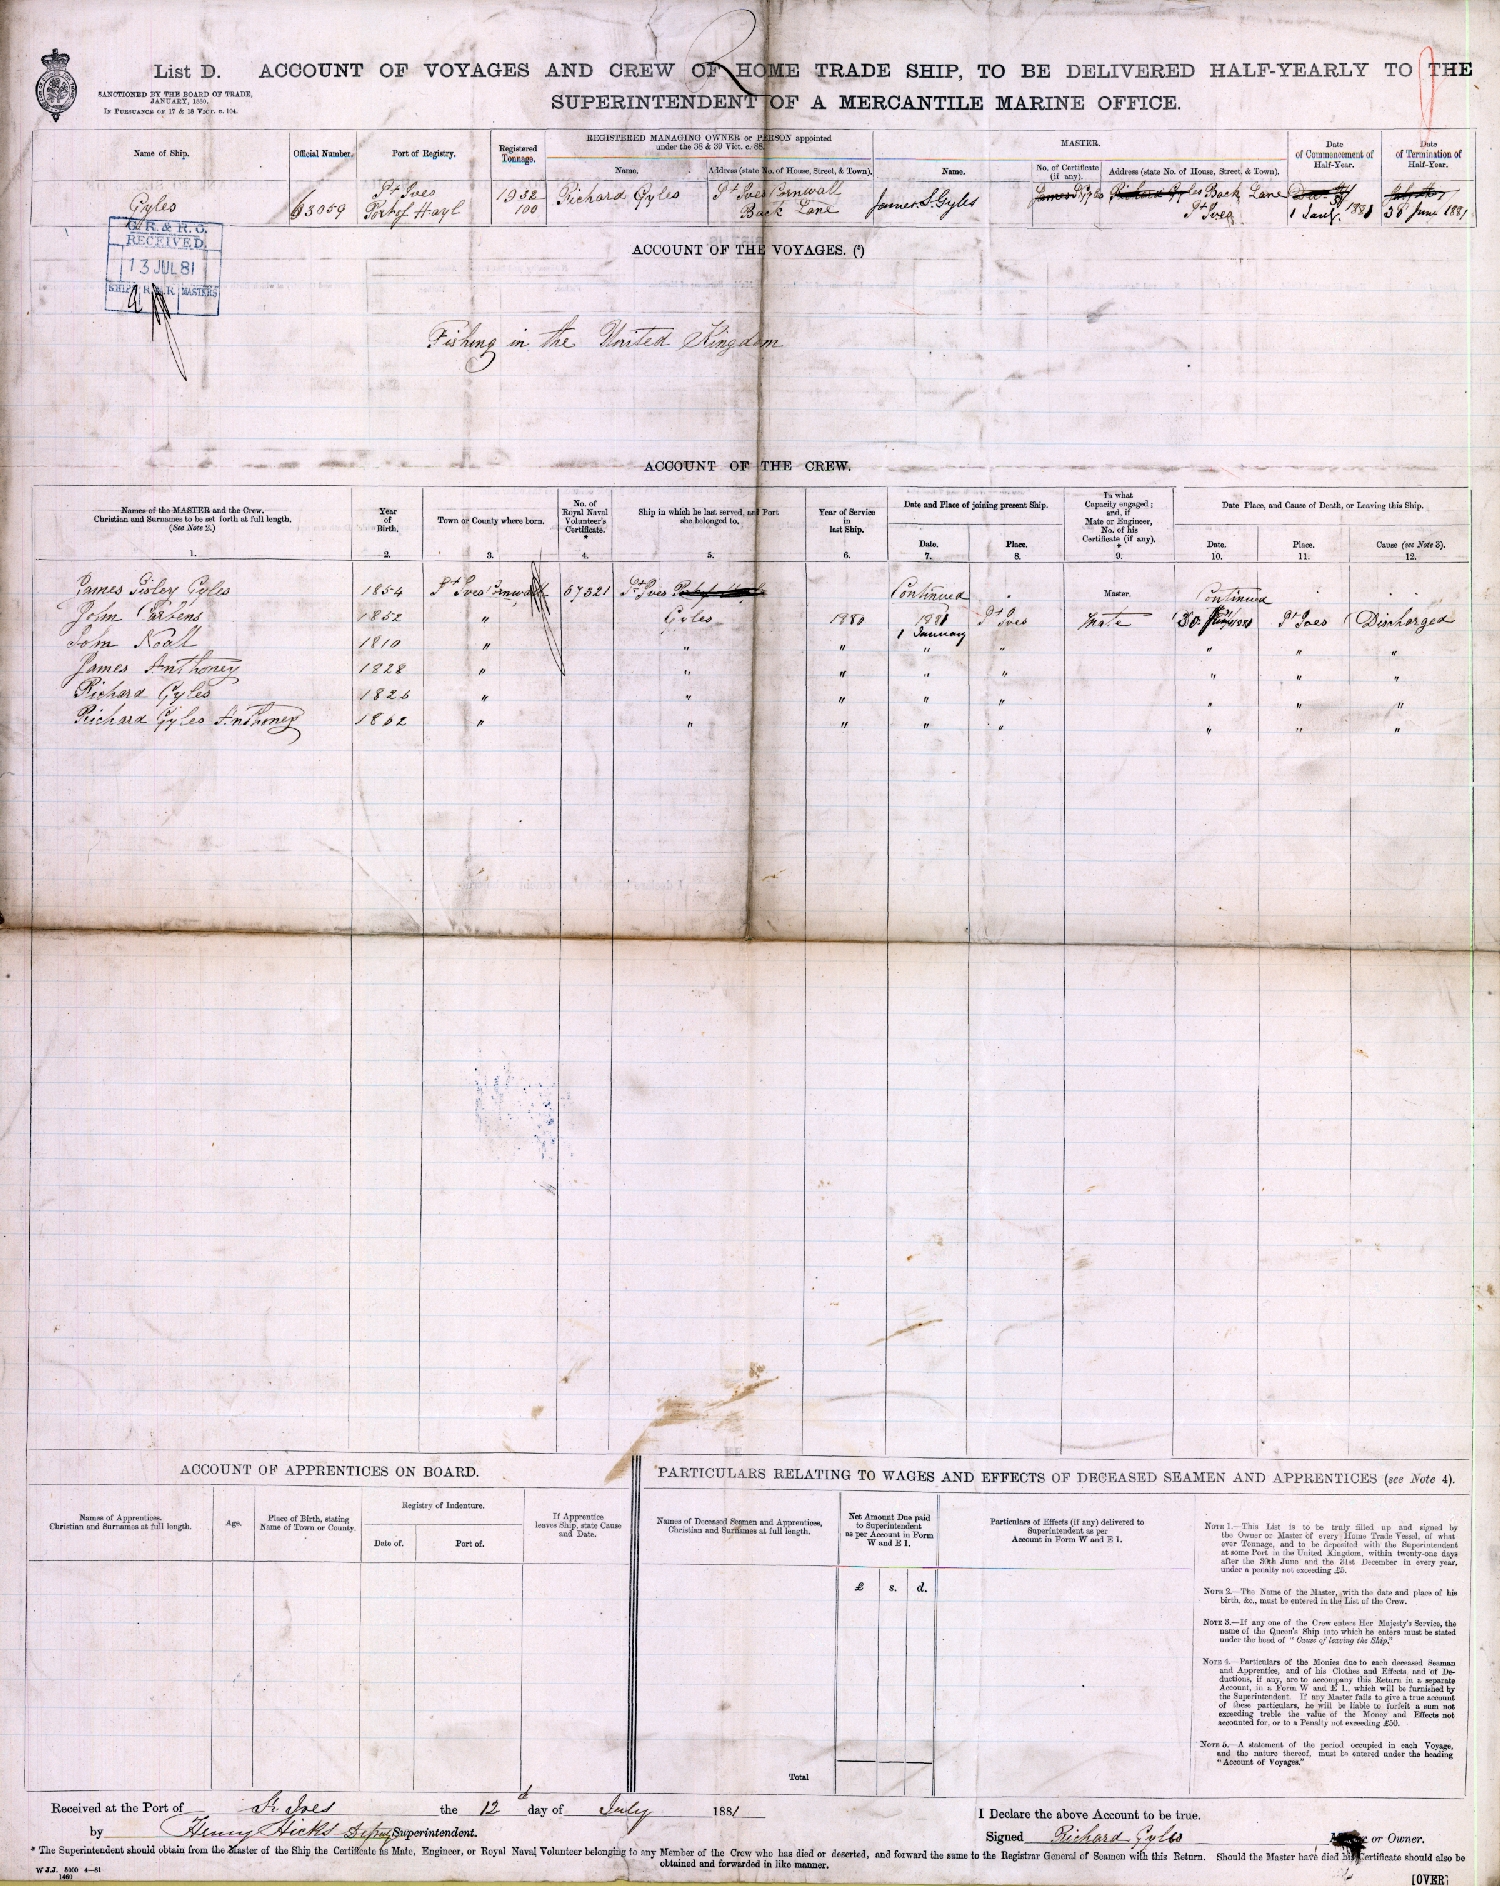 List D. ACCOUNT OF VOYAGES AND CREW OF HOME TRADE SHIP, TO BE DELIVERED HALF-YEARLY TO THE
SUPERINTENDENT OF A MERCANTILE MARINE OFFICE.
SANCTIONED BY THE BOARD OF TRADE,
JANUARY, 1880,
IN PURSUANCE OF 17 & 18 VICT. c. 104.
Name of Ship.
Official Number.
Port of Registry.
Registered Tonnage.
REGISTERED MANAGING OWNER or PERSON appointed
under the 38 & 39 Vict. c. 88.
Name.
Address (state No. of House, Street, & Town).
MASTER.
Name.
No. of Certificate (if any).
Address (state No. of House, Street, & Town).
Date of Commencement of Half-Year.
Date of Termination of Half-Year.
Gyles
63059
St Ives
Port of Hayl
19 32/100
Richard Gyles
St Ives Cornwall
Back Lane
James S. Gyles
Back Lane
St Ives
1 Jany. 1881
30 June 1881
& R. S.
RECEIVED.
13 JUL 81
SHIPS
MASTERS
ACCOUNT OF THE VOYAGES. (*)
Fishing in the United Kingdom
ACCOUNT OF THE CREW.
Names of the MASTER and the Crew.
Christian and Surnames to be set forth at full length.
(See Note 2.)
1.
Year of Birth.
2.
Town or County where born.
3.
No. of Royal Naval Volunteer's Certificate.
*
4.
Ship in which he last served, and Port she belonged to.
5.
Year of Service in last Ship.
6.
Date and Place of joining present Ship.
Date.
7.
Place.
8.
In what Capacity engaged; and, if Mate or Engineer, No. of his Certificate (if any).
*
9.
Date, Place, and Cause of Death, or Leaving this Ship.
Date.
10.
Place.
11.
Cause (see Note 3).
12.
James Sisley Gyles 1854 St Ives Cornwall 67321 St Ives Continued Master. Continued
John 1852 " Gyles 1880 1881 St Ives Mate 30 St Ives Discharged
1 January
John Noall 1810 " " " " " " " "
James Anthoney 1828 " " " " " " " "
Richard Gyles 1826 " " " " " " " "
Richard Gyles Anthoney 1862 " " " " " " " "
ACCOUNT OF APPRENTICES ON BOARD.
Names of Apprentices.
Christian and Surnames at full length.
Age.
Place of Birth, stating Name of Town or County.
Registry of Indenture.
Date of.
Port of.
If Apprentice leaves Ship, state Cause and Date.
PARTICULARS RELATING TO WAGES AND EFFECTS OF DECEASED SEAMEN AND APPRENTICES (see Note 4).
Names of Deceased Seamen and Apprentices,
Christian and Surnames at full length.
Net Amount Due paid to Superintendent as per Account in Form W and E 1.
£ s. d.
Particulars of Effects (if any) delivered to
Superintendent as per
Account in Form W and E 1.
Total
NOTE 1.—This List is to be truly filled up and signed by
the Owner or Master of every Home Trade Vessel, of what
ever Tonnage, and to be deposited with the Superintendent
at some Port in the United Kingdom, within twenty-one days
after the 30th June and the 31st December in every year,
under a penalty not exceeding £5.
NOTE 2.—The Name of the Master, with the date and place of his
birth, &c., must be entered in the List of the Crew.
NOTE 3.—If any one of the Crew enters Her Majesty's Service, the
name of the Queen's Ship into which he enters must be stated
under the head of "Cause of leaving the Ship."
NOTE 4.—Particulars of the Monies due to each deceased Seaman
and Apprentice, and of his Clothes and Effects, and of De-
ductions, if any, are to accompany this Return in a separate
Account, in a Form W and E 1., which will be furnished by
the Superintendent. If any Master fails to give a true account
of these particulars, he will be liable to forfeit a sum not
exceeding treble the value of the Money and Effects not
accounted for, or to a Penalty not exceeding £50.
NOTE 5.—A statement of the period occupied in each Voyage,
and the nature thereof, must be entered under the heading
"Account of Voyages."
Received at the Port of St. Ives the 12 day of July 1881
by Henry Hicks Deputy Superintendent.
I Declare the above Account to be true.
Signed Richard Gyles or Owner.
* The Superintendent should obtain from the Master of the Ship the Certificate as Mate, Engineer, or Royal Naval Volunteer belonging to any Member of the Crew who has died or deserted, and forward the same to the Registrar General of Seamen with this Return. Should the Master have died his Certificate should also be
obtained and forwarded in like manner.
W J.J. 5000 4—81
1461
[OVER]